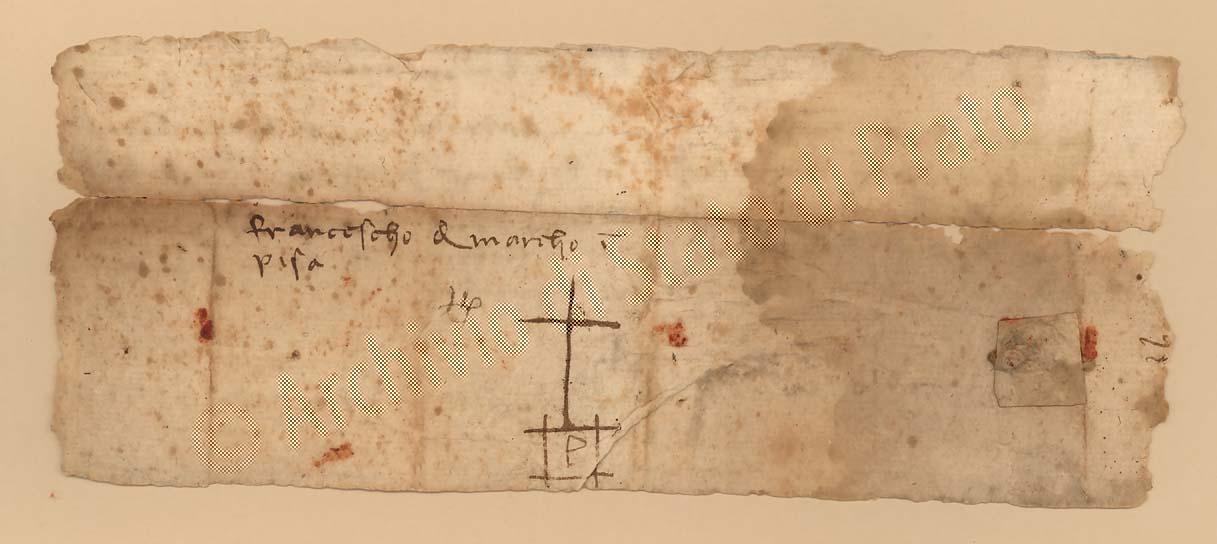 francescho d marcho ī
pisa
P
© Archivio di Stato di Prato